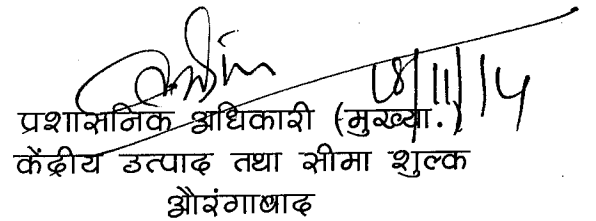 18/11/14
प्रशासनिक अधिकारी (मुख्या.)
केंद्रीय उत्पाद तथा सीमा शुल्क
औरंगाबाद